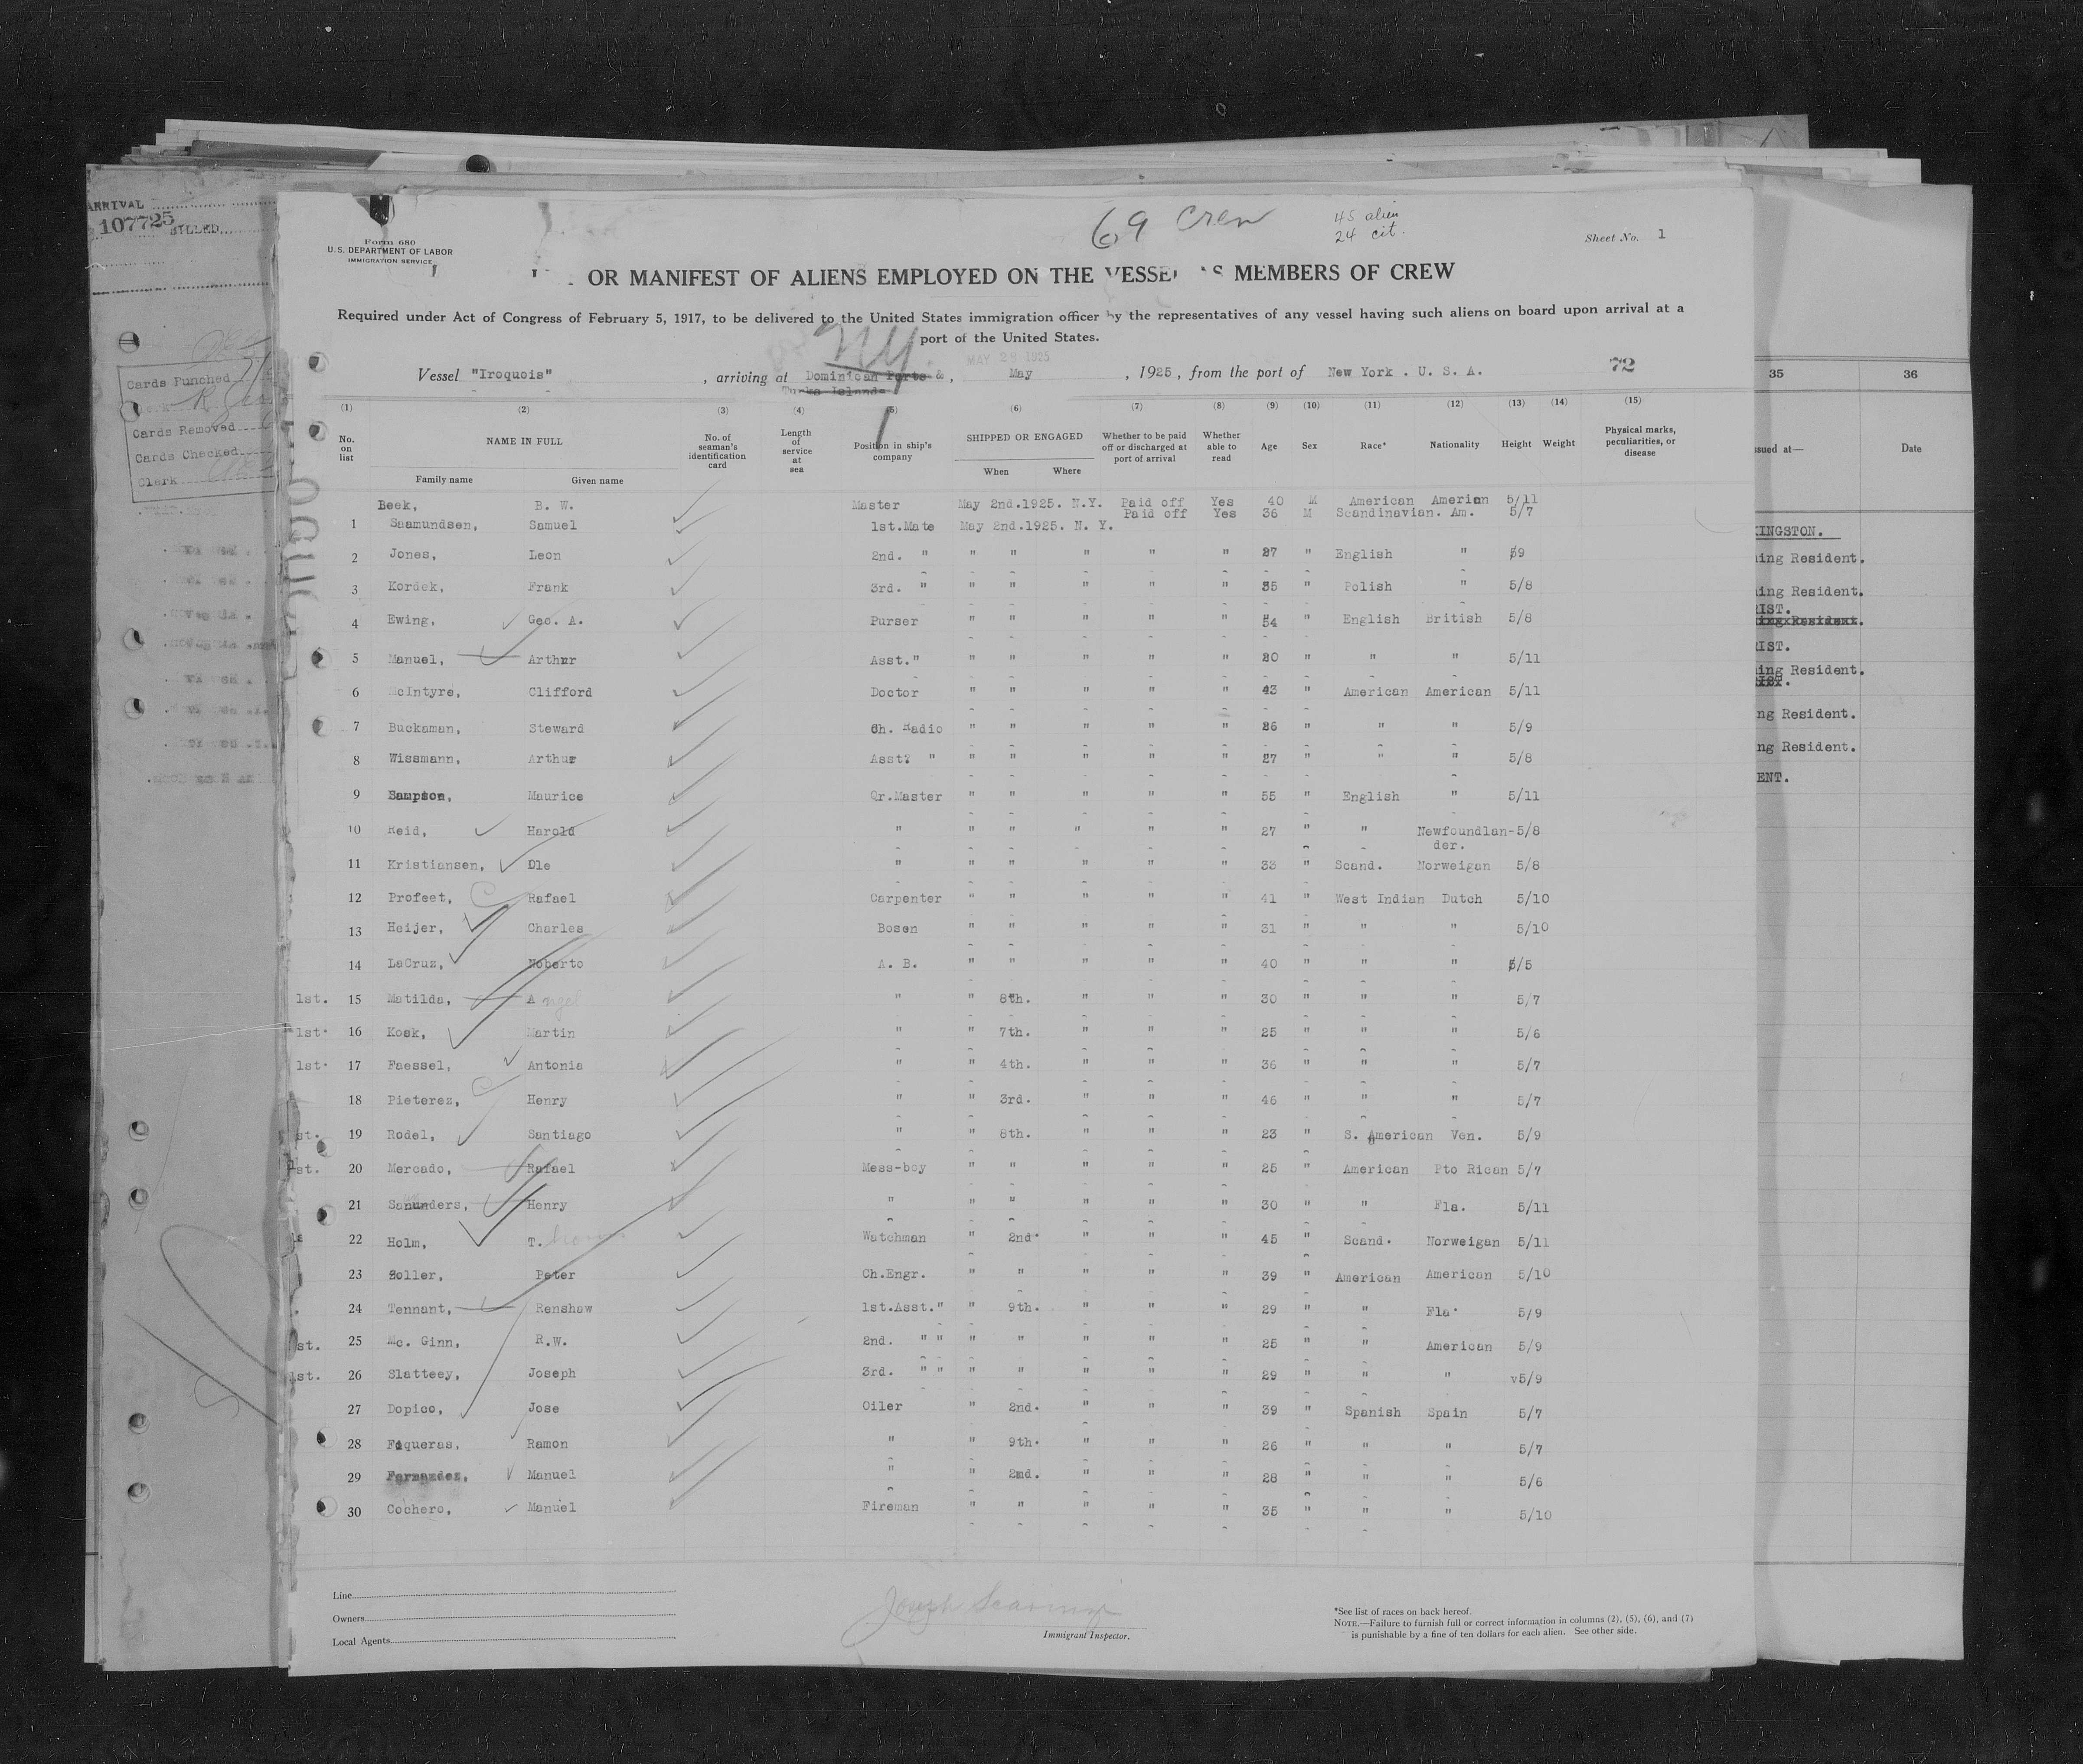 ARRIVAL
107725
BILLED
Cards Punched
Cards Removed
Cards Checked
Clerk
69 Crew
45 alien
24 cit.
Sheet No. 1
Form 680
U.S. DEPARTMENT OF LABOR
IMMIGRATION SERVICE
OR MANIFEST OF ALIENS EMPLOYED ON THE VESSEL AS MEMBERS OF CREW
Required under Act of Congress of February 5, 1917, to be delivered to the United States immigration officer by the representatives of any vessel having such aliens on board upon arrival at a
port of the United States.
NY
MAY 28 1925
72
Vessel "Iroquois" , arriving at Dominican Ports & , May , 1925 , from the port of New York . U. S. A.
Turks Islands
(1) (2) (3) (4) (5) (6) (7) (8) (9) (10) (11) (12) (13) (14) (15)
No. on list
NAME IN FULL
Family name Given name
No. of seaman's identification card
Length of service at sea
Position in ship's company
SHIPPED OR ENGAGED
When Where
Whether to be paid off or discharged at port of arrival
Whether able to read
Age Sex Race* Nationality Height Weight
Physical marks, peculiarities, or disease
Beek, B. W. Master May 2nd.1925. N.Y. Paid off Yes 40 M American Amerian 5/11
1 Saamundsen, Samuel 1st.Mate May 2nd.1925. N. Y. Paid off Yes 36 M Scandinavian. Am. 5/7
2 Jones, Leon 2nd. " " " " " " 27 " English " 59
3 Kordek, Frank 3rd. " " " " " " 35 " Polish " 5/8
4 Ewing, Geo. A. Purser " " " " " 54 " English British 5/8
5 Manuel, Arthur Asst." " " " " " 20 " " " 5/11
6 McIntyre, Clifford Doctor " " " " " 43 " American American 5/11
7 Buckaman, Steward Ch. Radio " " " " " 26 " " " 5/9
8 Wissmann, Arthur Asst? " " " " " " 27 " " " 5/8
9 Sampson, Maurice Qr.Master " " " " " 55 " English " 5/11
10 Reid, Harold " " " " " " 27 " " Newfoundlan- 5/8
der.
11 Kristiansen, Ole " " " " " " 33 " Scand. Norweigan 5/8
12 Profeet, Rafael Carpenter " " " " " 41 " West Indian Dutch 5/10
13 Heijer, Charles Bosen " " " " " 31 " " " 5/10
14 LaCruz, Noberto A. B. " " " " " 40 " " " 5/5
1st. 15 Matilda, Angel " " 8th. " " " 30 " " " 5/7
1st. 16 Kosk, Martin " " 7th. " " " 25 " " " 5/6
1st. 17 Faessel, Antonia " " 4th. " " " 36 " " " 5/7
18 Pieterez, Henry " " 3rd. " " " 46 " " " 5/7
st. 19 Rodel, Santiago " " 8th. " " " 23 " S. American Ven. 5/9
1st. 20 Mercado, Rafael Mess-boy " " " " " 25 " American Pto Rican 5/7
21 Saunders, Henry " " " " " " 30 " " Fla. 5/11
22 Holm, T. Watchman " 2nd. " " " 45 " Scand. Norweigan 5/11
23 Soller, Peter Ch.Engr. " " " " " 39 " American American 5/10
24 Tennant, Renshaw 1st.Asst." " 9th. " " " 29 " " Fla. 5/9
st. 25 Mc. Ginn, R.W. 2nd. " " " " " " " 25 " " American 5/9
1st. 26 Slatteey, Joseph 3rd. " " " " " " " 29 " " " v5/9
27 Dopico, Jose Oiler " 2nd. " " " 39 " Spanish Spain 5/7
28 Fiqueras, Ramon " " 9th. " " " 26 " " " 5/7
29 Fernandez, Manuel " " 2nd. " " " 28 " " " 5/6
30 Cochero, Manuel Fireman " " " " " 35 " " " 5/10
Line
Owners
Local Agents
Joseph
Immigrant Inspector.
*See list of races on back hereof.
NOTE.—Failure to furnish full or correct information in columns (2), (5), (6), and (7)
is punishable by a fine of ten dollars for each alien. See other side.
35 36
ssued at— Date
KINGSTON.
ing Resident.
ing Resident.
RIST.
RIST.
ing Resident.
ng Resident.
ng Resident.
ENT.